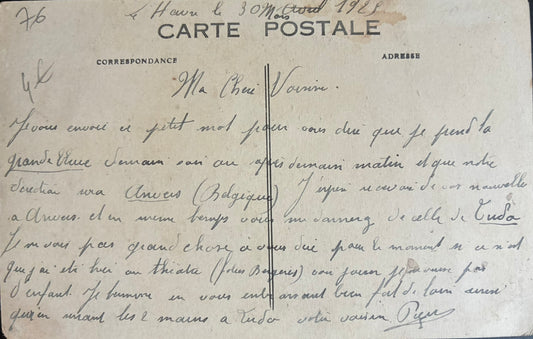 76
Le Havre le 30 Mars Avril 1928
CARTE POSTALE
CORRESPONDANCE
ADRESSE
4£
Ma Cheré Voisine.
Je vous envoie ce petit mot pour vous dire que je prend la
grande Bleue demain soir ou après demain matin et que notre
direction sera Anvers (Belgique) J'espère recevoir de vos nouvelles
a Anvers et en meme temps vous me donnerez de celle de Tuda
Je ne vois pas grand chose a vous dire pour le moment si ce n'est
que j'ai eté hier au théatre (folies Bergeres) on
d'enfant. Je termine en vous embrassant bien fort de loin ainsi
qu'en serrant les 2 mains a Tuda votre voisin